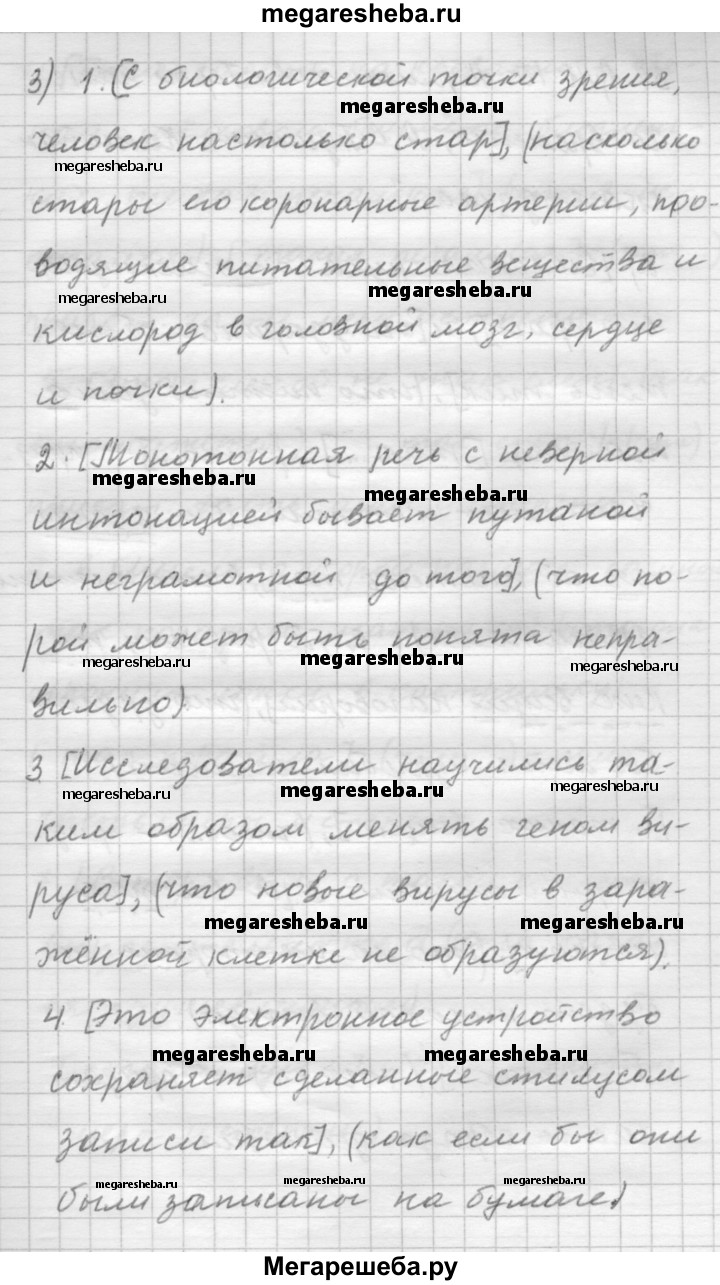 megaresheba.ru
3) 1. [С биологической точки зрения,
megaresheba.ru
человек настолько стар], (насколько
megaresheba.ru
стары его коронарные артерии, про-
водящие питательные вещества и
megaresheba.ru megaresheba.ru
кислород в головной мозг, сердце
и почки).
2. [Монотонная речь с неверной
megaresheba.ru megaresheba.ru
интонацией бывает путаной
и неграмотной до того], (что по-
рой может быть понята непра-
megaresheba.ru megaresheba.ru megaresheba.ru
вильно)
3 [Исследователи научились та-
megaresheba.ru megaresheba.ru megaresheba.ru
ким образом менять геном ви-
руса], (что новые вирусы в зара-
megaresheba.ru megaresheba.ru
жённой клетке не образуются).
4. [Это электронное устройство
megaresheba.ru megaresheba.ru
сохраняет сделанные стилусом
записи так], (как если бы они
megaresheba.ru megaresheba.ru megaresheba.ru
были записаны на бумаге)
Мегарешеба.ру